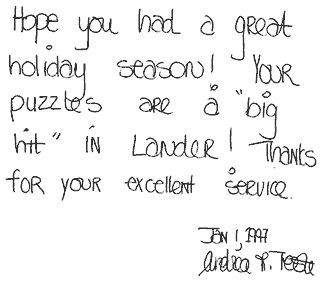 Hope you had a great
holiday season! Your
puzzles are a "big
hit" in Lander! Thanks
for your excellent service.
Jan 1, 1997
Andrea